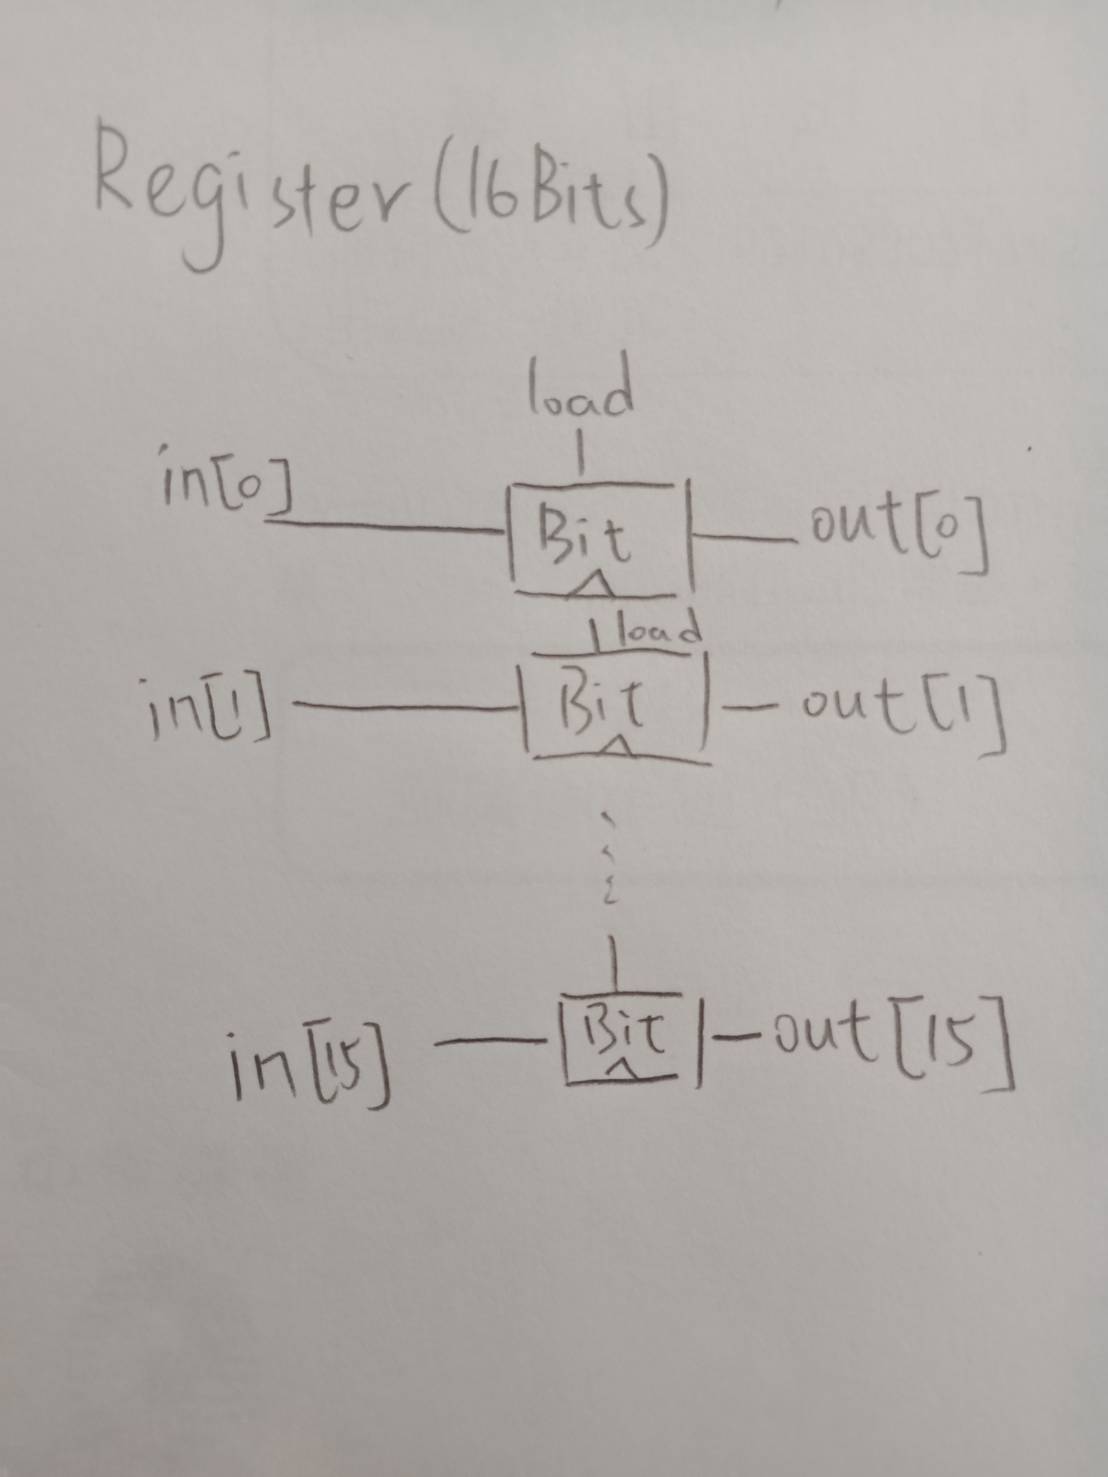 Register(16Bits)
load
in[0] Bit out[0]
load
in[1] Bit out[1]
in[15] Bit out[15]